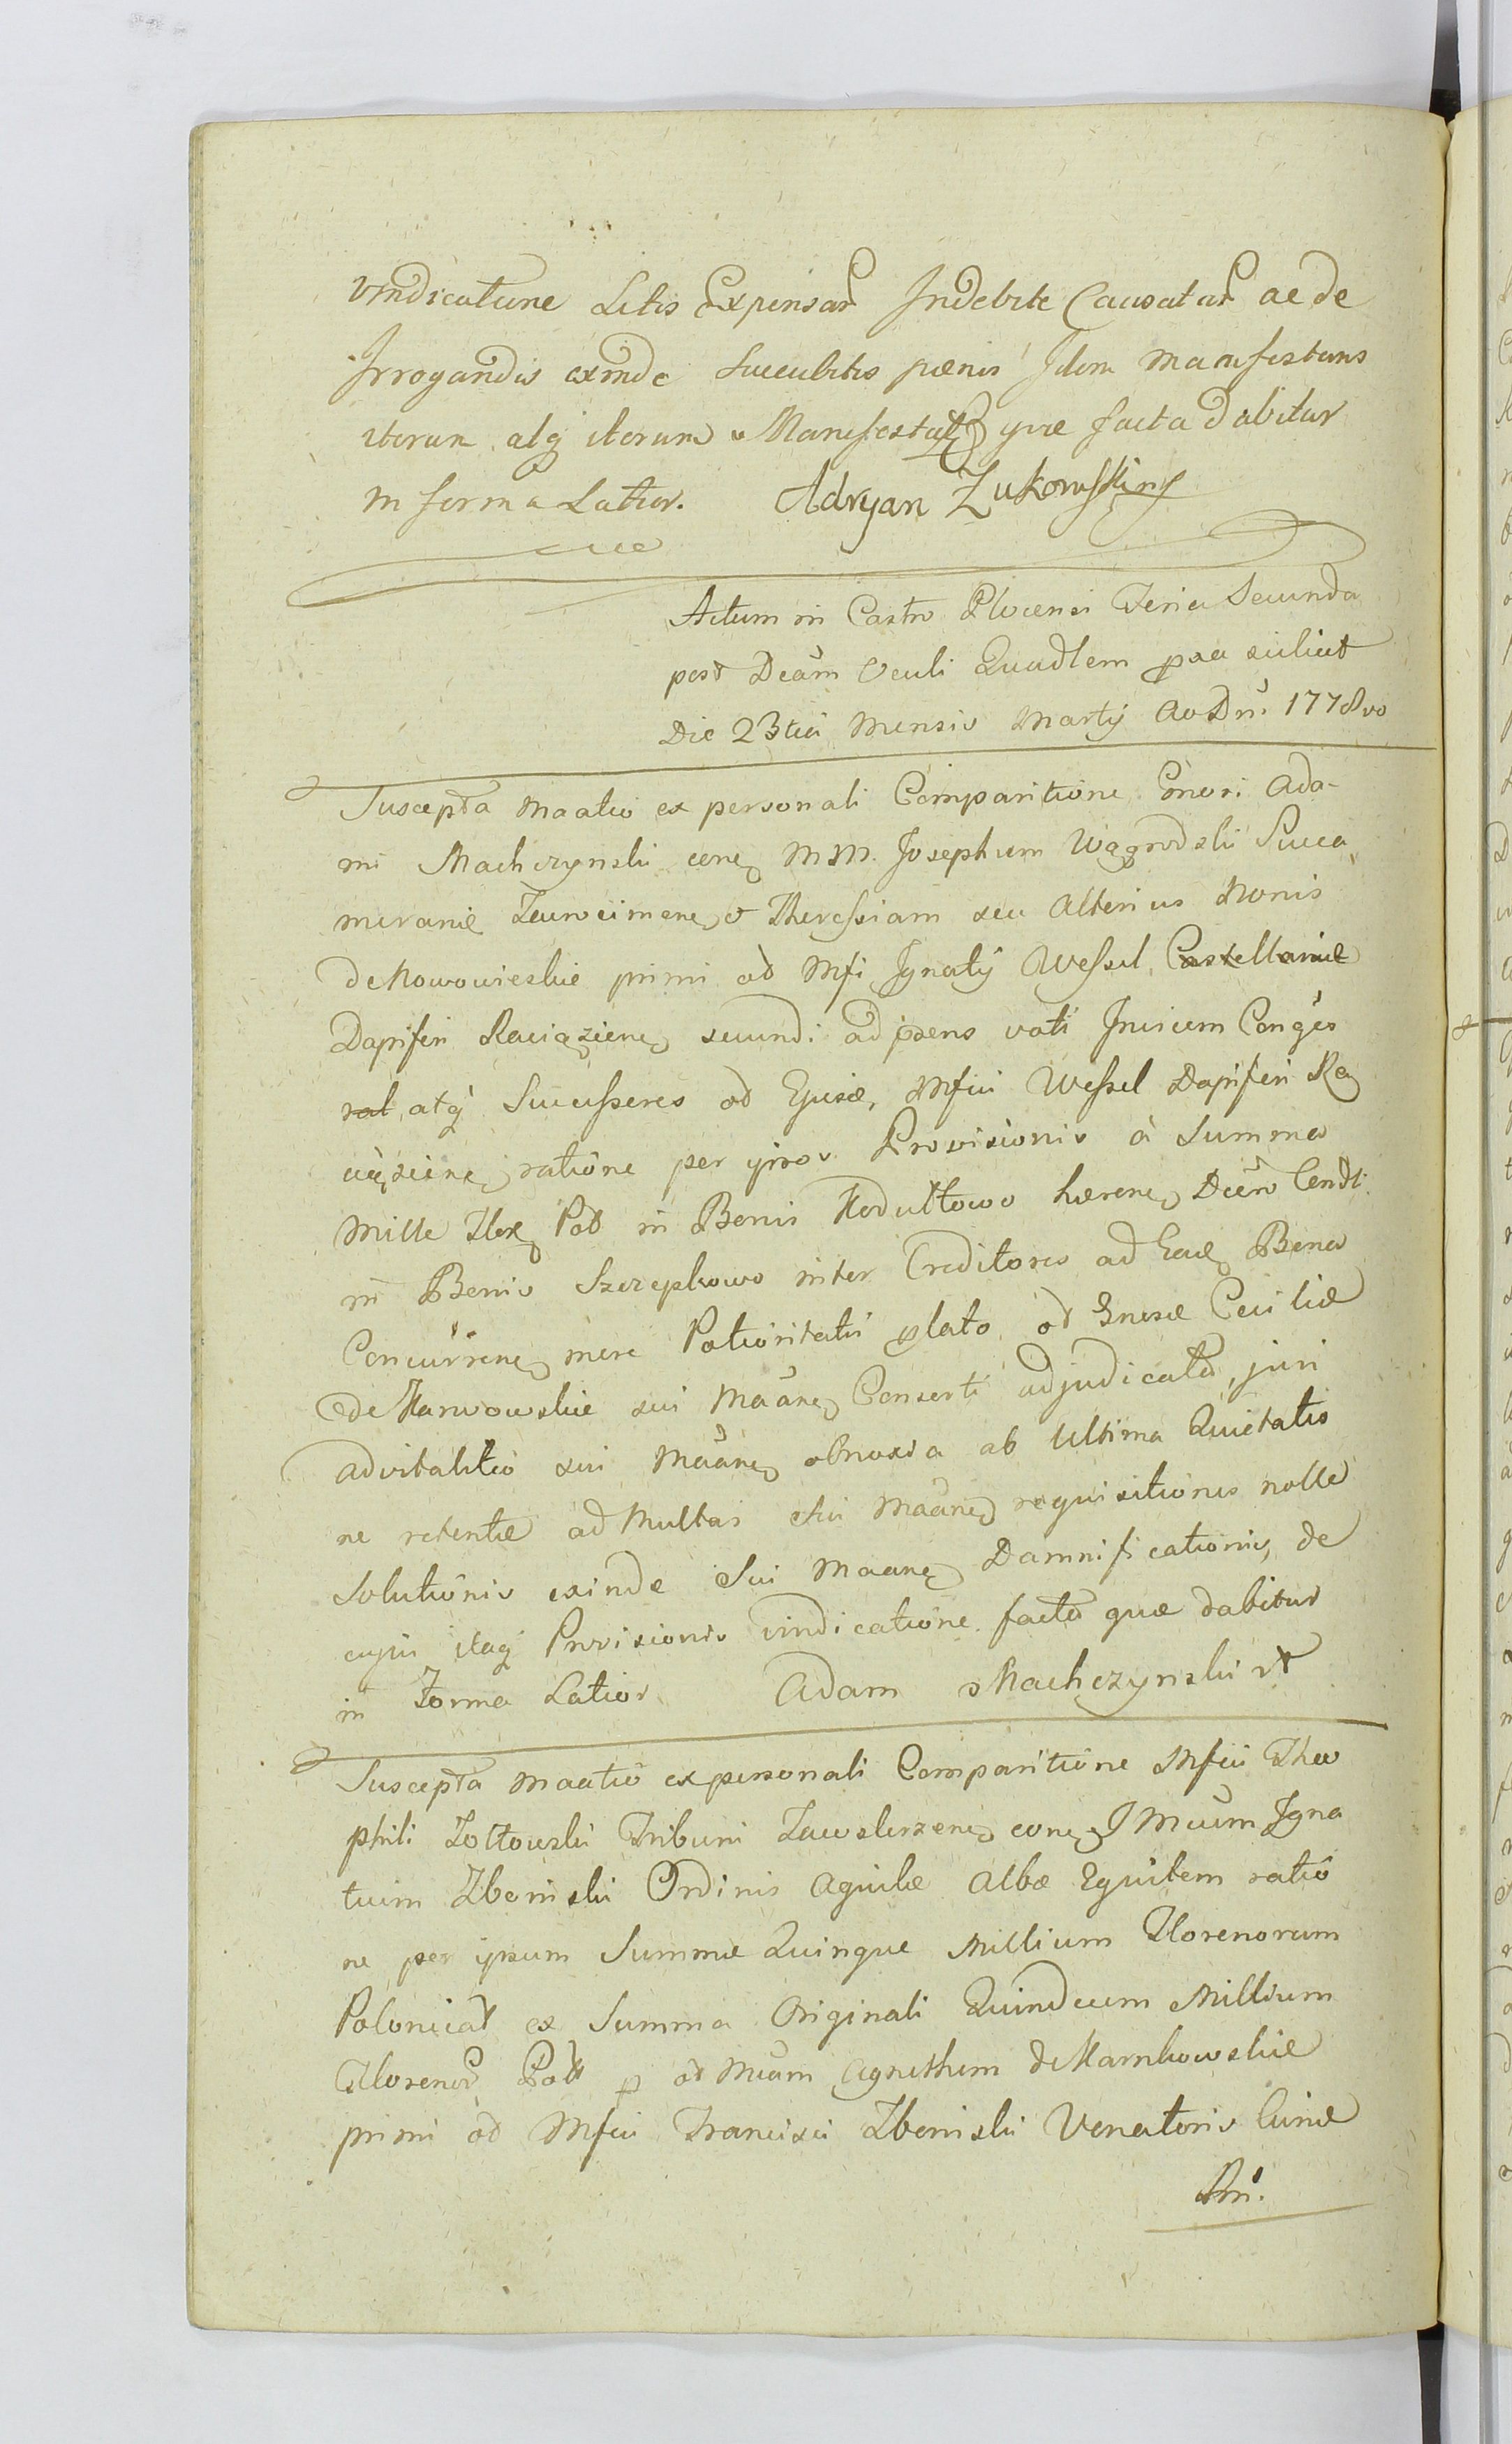 vindicatione Litis Expensar Indebite Causatar ac de
Irrogandis exinde Succubitis pœnis Idem manifestans
iterum atq iterum Manifestat quæ facta dabitur
in forma Latior. Adryan Zukowski
Actum in Castro Plocensi Feria Secunda
post Dcam Oculi Quadlem pxa scilicet
Die 23tia Mensis Martij Ao Dni 1778vo
Suscepta maatio ex personali Comparitione Gnosi Ada-
mi Machczynski conq MM. Josephum Wągrodzki Succa
merariæ Zawcimenq et Theressiam seu Alterius Nonis
de Nowowieskie primi od Mfi Ignatij Wessel Castellaniæ
Dapiferi Raciązienq secundi ad pxens voti Invicem Conges
ral atq Successeres od Ejusd, Mfici Wessel Dapiferi Ra
ciązienq ratione per ipsos Provisionis à Summa
Mille Flor Pol in Bonis Kodułtowo hærenq Decro Cendi
in Bonis Szczepkowo inter Creditores ad Ead Bona
Concurrenq mere Potioritatis plato od Gnosæ Ceciliæ
de Karwowskie sui Maanq Conserti adjudicata, juri
advitalitio sui Maanq obnoxia ab Ultima Quietatio
ne retentæ ad Multas Sui Maanq requisitiones nolle
Solutionis exinde Sui Maanq Damnificationis, de
cujus itaq Provisionis vindicatione facta quæ dabitur
in Forma Latior Adam Machczynski
Suscepta maatio ex personali Comparitione Mfici Theo
phili Zołtowski Tribuni Zawskrzenq conq I Mcum Igna
tium Zboinski Ordinis Aquilæ Albæ Equitem ratio
ne per ipsum Summæ Quinque Millium Florenorum
Polonical ex Summa Originali Quindecim Millium
Florenor Pol p od Mcam Agnethem de Karnkowskie
primi od Mfici Francisci Zboinski Venatoris